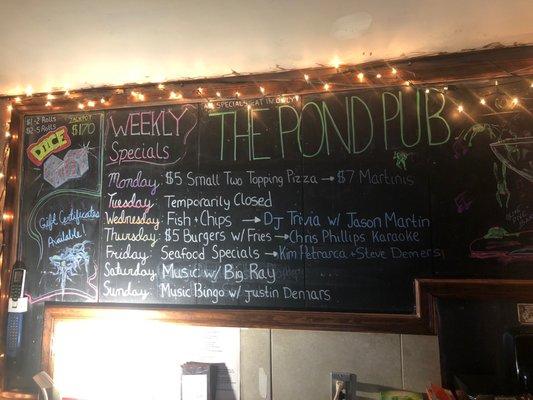 $1-2 Rolls
$2-5 Rolls
JACKPOT
$170
DICE
Gift Certificates
Available
WEEKLY
Specials
SPECIALS EAT IN ONLY
THE POND PUB
Monday: $5 Small Two Topping Pizza → $7 Martinis
Tuesday: Temporarily Closed
Wednesday: Fish + Chips → DJ Trivia w/ Jason Martin
Thursday: $5 Burgers w/ Fries → Chris Phillips Karaoke
Friday: Seafood Specials → Kim Petrarca + Steve Demers
Saturday: Music w/ Big Ray
Sunday: Music Bingo w/ Justin Demars